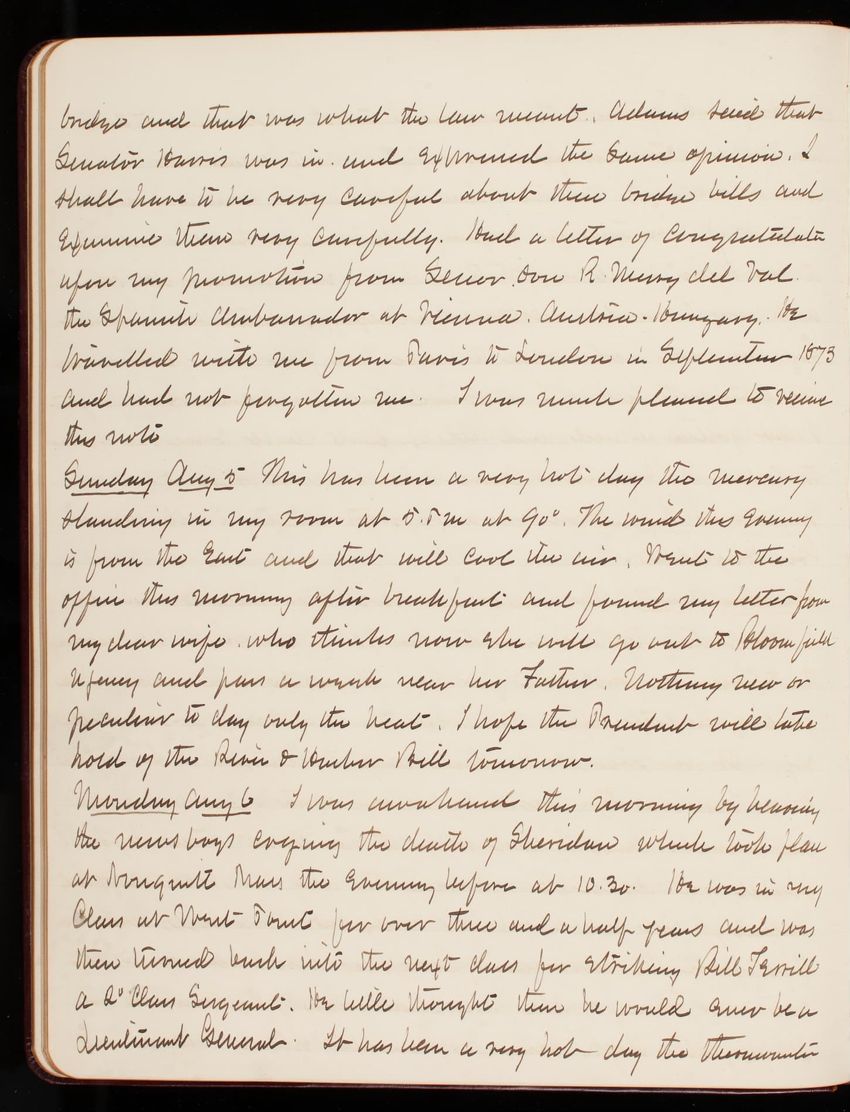 bridge and that was what the law meant. Adams said that
Senator Harris was in and expressed the same opinion. I
shall have to be very careful about these bridge bills and
Examine them very carefully. Had a letter of Congratulatn
upon my promotion from Senor Don R. Merry del Val
the Spanish Ambassador at Vienna. Austria-Hungary. He
travelled with me from Paris to London in September 1873
and had not forgotten me. I was much pleased to receive
this note
Sunday Aug 5 This has been a very hot day the mercury
standing in my room at 5. P m at 90°. The wind this Evening
is from the East and that will cool the air. Went to the
office this morning after breakfast and found my letter from
my dear wife who thinks now she will go out to Bloomfield
Agency and pass a week near her Father. Nothing new or
peculiar to day only the heat. I hope the President will take
hold of the River & Harbor Bill tomorrow.
Monday Aug 6 I was awakened this morning by hearing
the news boys crying the death of Sheridan which took place
at Nonquitt Mass the Evening before at 10.30. He was in my
Class at West Point for over three and a half years and was
then turned back into the next class for striking Bill Terrill
a 2° Class Sergeant. He little thought then he would ever be a
Lieutenant General. It has been a very hot day the thermometer